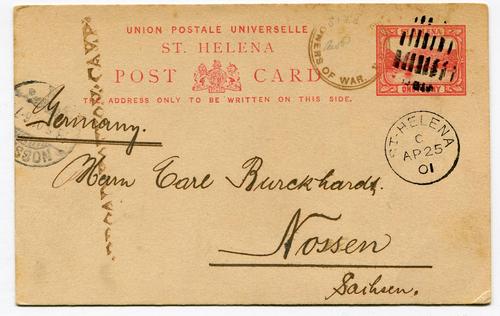 UNION POSTALE UNIVERSELLE
ST. HELENA
POST CARD
THE ADDRESS ONLY TO BE WRITTEN ON THIS SIDE.
ONERS OF WAR.
ST. HELENA
ONE PENNY
ST. HELENA
C
AP 25
01
NOSS
Germany.
Herrn Carl Burckhardt
Nossen
Sachsen.